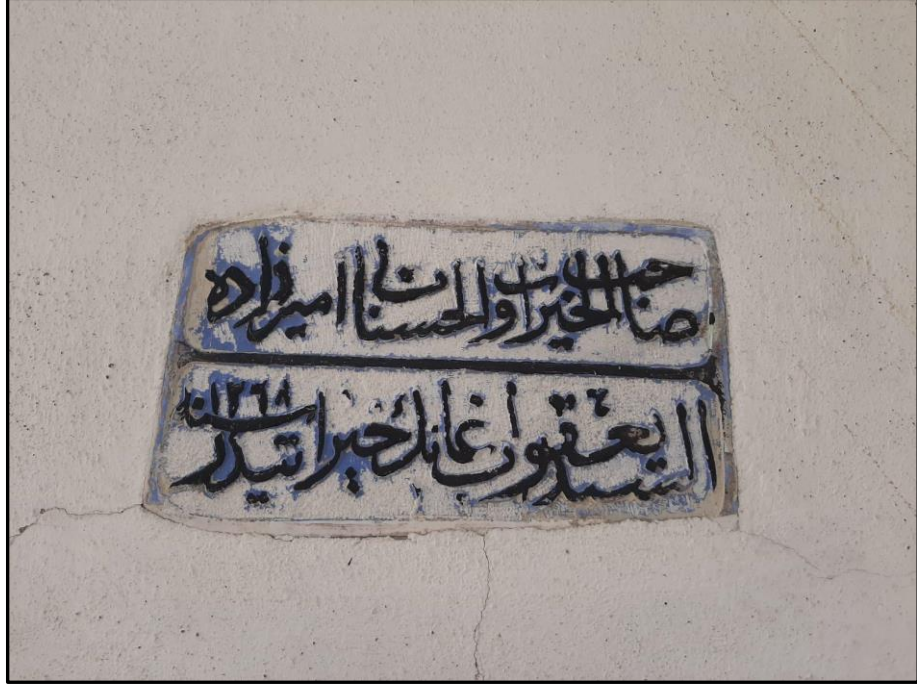 صاحب الخيرات والحسنات اميرزاده
السيد يعقوب اغانك خيراتيدر سنه ١٢٦٨